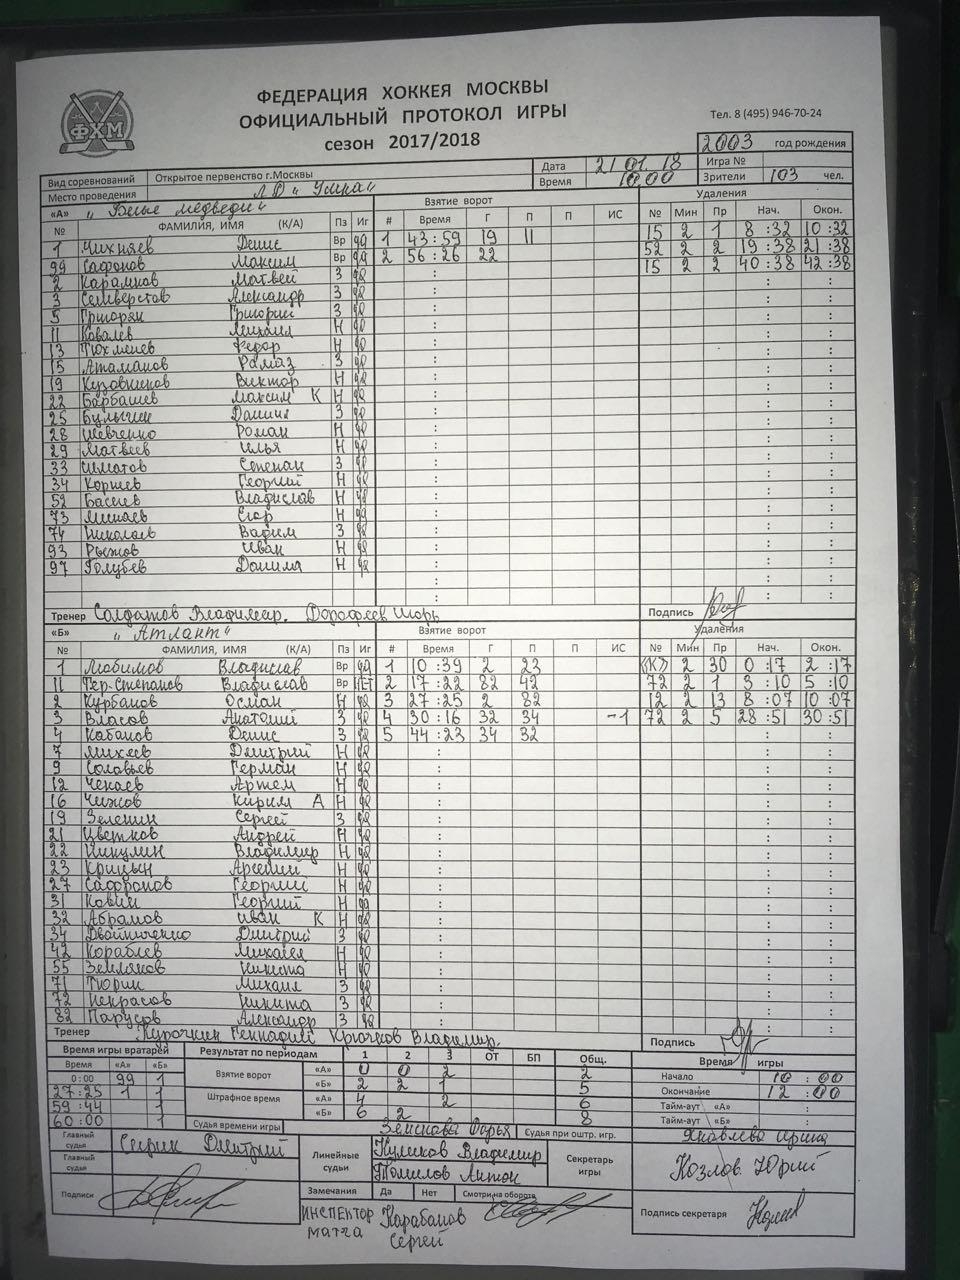 ФЕДЕРАЦИЯ ХОККЕЯ МОСКВЫ
ОФИЦИАЛЬНЫЙ ПРОТОКОЛ ИГРЫ
сезон 2017/2018
ФХМ
Тел. 8 (495) 946-70-24
2003 год рождения
Вид соревнований Открытое первенство г.Москвы Дата 21 01. 18 Игра №
Место проведения ЛД "Умка" Время 10.00 Зрители 103 чел.
«А» "Белые медведи" Взятие ворот Удаления
№ ФАМИЛИЯ, ИМЯ (К/А) Пз Иг # Время Г П П ИС № Мин Пр Нач. Окон.
1 Михняев Денис Вр да 1 43:59 19 11 15 2 1 8:32 10:32
99 Сафонов Максим Вр да 2 56:26 22 52 2 2 19:38 21:38
2 Карамнов Матвей З да 15 2 2 40:38 42:38
3 Селиверстов Александр З да
5 Григорян Григорий З да
11 Ковалев Михаил Н да
13 Тюхменев Федор Н да
15 Атаманов Рамаз З да
19 Кузовников Виктор Н да
22 Барбашев Максим К Н да
25 Булыгин Даниил З да
28 Шевченко Роман Н да
29 Матвеев Илья Н да
33 Степенан З да
34 Корнеев Георгий Н да
52 Басиев Владислав Н да
73 Минаев Егор Н да
74 Николаев Вадим З да
93 Рыжов Иван Н да
97 Голубев Данила Н да
Тренер Солдатов Владимир. Дорофеев Игорь Подпись
«Б» "Атлант" Взятие ворот Удаления
№ ФАМИЛИЯ, ИМЯ (К/А) Пз Иг # Время Г П П ИС № Мин Пр Нач. Окон.
1 Любимов Владислав Вр да 1 10:39 2 23 «К» 2 30 0:17 2:17
11 Тер-Степанов Владислав Вр нет 2 17:22 82 42 72 2 1 3:10 5:10
2 Курбанов Осман Н да 3 27:25 2 82 12 2 13 8:07 10:07
3 Власов Анатолий З да 4 30:16 32 34 -1 72 2 5 28:51 30:51
4 Кабанов Денис З да 5 44:23 34 32
7 Михеев Дмитрий Н да
9 Соловьев Герман Н да
12 Чекаев Артем Н да
16 Чижов Кирилл А Н да
19 Зеленин Сергей З да
21 Цветков Андрей Н да
22 Никулин Владимир Н да
23 Крицын Арсений Н да
27 Сафронов Георгий Н да
31 Кавин Георгий Н да
32 Абрамов Иван К Н да
34 Двойниченко Дмитрий З да
42 Кораблев Михаил Н да
55 Земляков Никита Н да
71 Тюрин Михаил З да
72 Некрасов Никита З да
82 Парусов Александр З да
Тренер Курочкин Геннадий Крючков Владимир. Подпись
Время игры вратарей Результат по периодам 1 2 3 ОТ БП Общ. Время игры
Время «А» «Б» Взятие ворот «А» 0 0 2 2 Начало 10:00
0:00 99 1 «Б» 2 2 1 5 Окончание 12:00
27:25 1 1 Штрафное время «А» 4 2 6 Тайм-аут «А»
59:44 1 «Б» 6 2 8 Тайм-аут «Б»
60:00 1 Судья времени игры Земскова Дарья Судья при оштр. игр. Яковлева Ирина
Главный судья Сирик Дмитрий Линейные судьи Куликов Владимир Секретарь игры Козлов Юрий
Главный судья Томилов Антон
Подписи Замечания Да Нет Смотри на обороте Подпись секретаря
ИНСПЕКТОР МАТЧА Карабанов Сергей